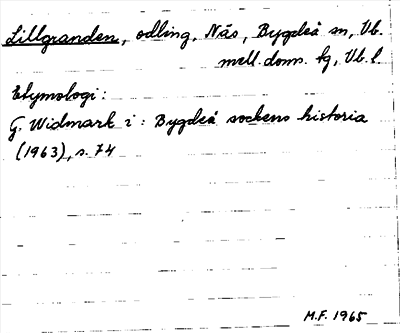 Lillgranden, odling, Näs, Bygdeå sn, Vb.
mell. doms. tg, Vb. l.
Etymologi:
G. Widmark i: Bygdeå sockens historia
(1963), s. 74
M.F. 1965